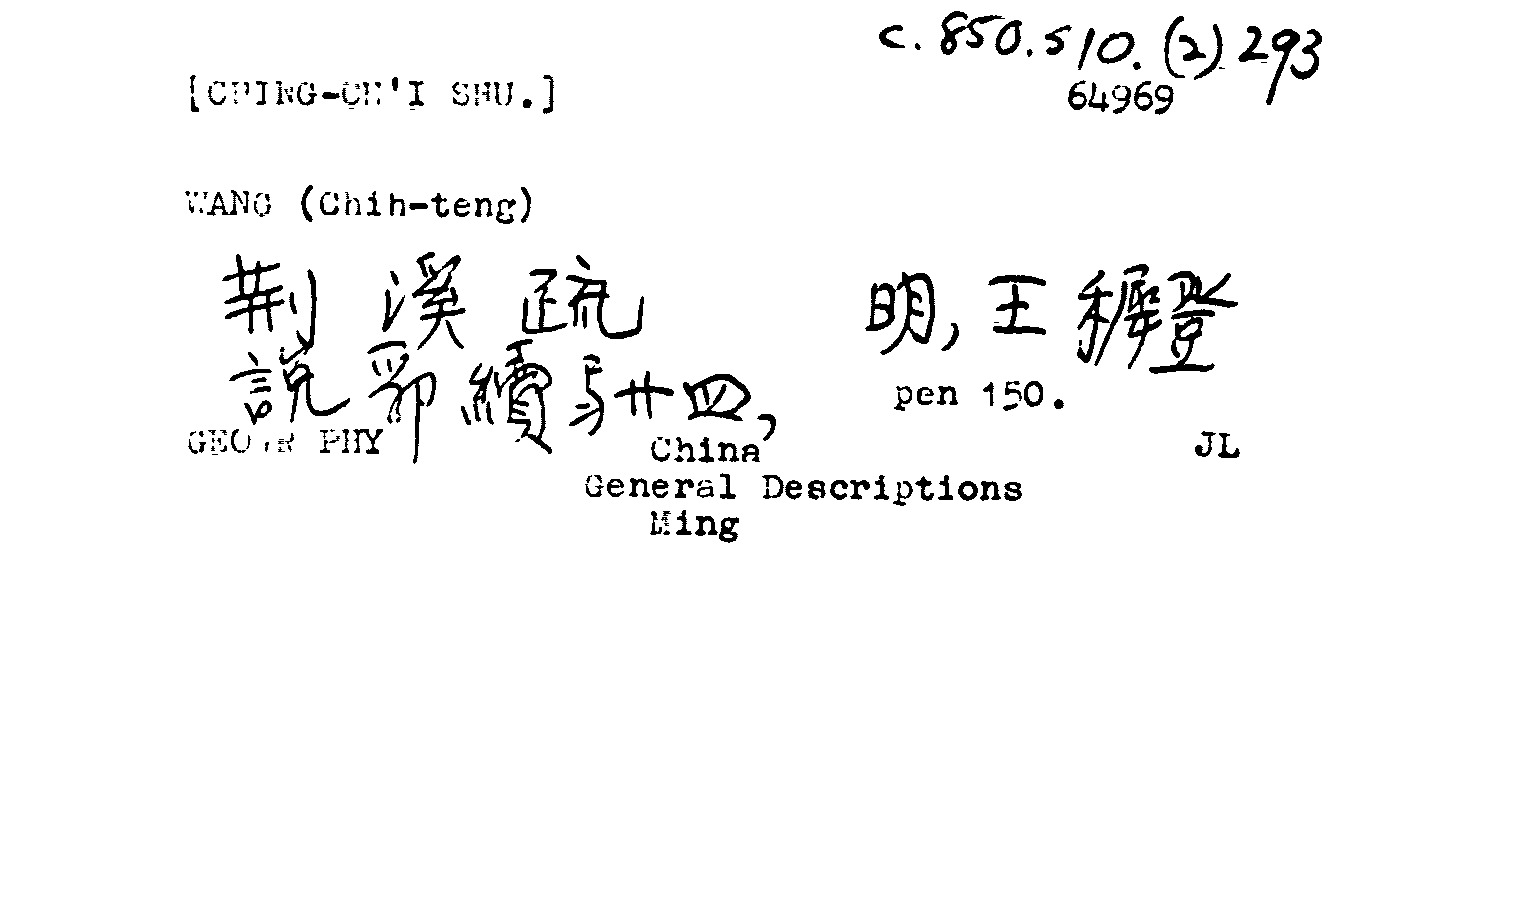 c. 850.510.(2) 293
[CHING-CH'I SHU.]
64969
WANG (Chih-teng)
荆溪疏 明, 王穉登
說郛續弓廿四,
pen 150.
GEOGR PHY China JL
General Descriptions
Ming